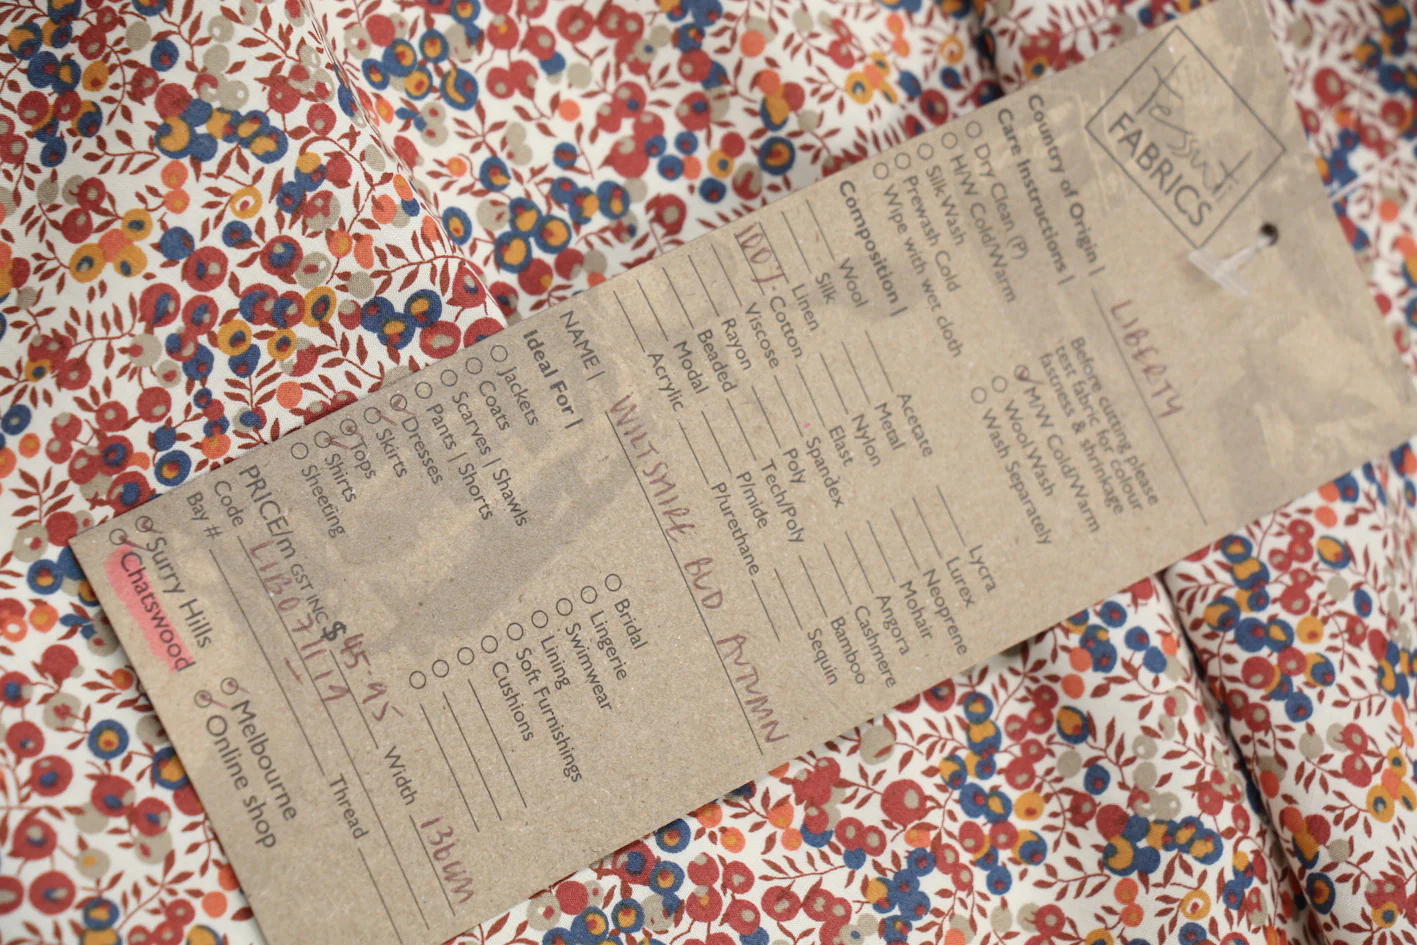 THE
tessuti
FABRICS
Country of Origin | LIBERTY
Care Instructions |
Before cutting please
test fabric for colour
fastness & shrinkage
Dry Clean (P)
H/W Cold/Warm
Silk Wash
Prewash Cold
Wipe with wet cloth
M/W Cold/Warm
Wool Wash
Wash Separately
Composition |
Wool
Silk
Linen
100% Cotton
Viscose
Rayon
Beaded
Modal
Acrylic
Acetate
Metal
Nylon
Elast
Spandex
Poly
Tech/Poly
P/mide
P/urethane
Lycra
Lurex
Neoprene
Mohair
Angora
Cashmere
Bamboo
Sequin
NAME | WILTSHIRE BUD AUTUMN
Ideal For |
Jackets
Coats
Scarves | Shawls
Pants | Shorts
Dresses
Skirts
Tops
Shirts
Sheeting
Bridal
Lingerie
Swimwear
Lining
Soft Furnishings
Cushions
PRICE/m GST INC $ 45.95 Width 136cm
Code LIB071119 Thread
Bay #
Surry Hills
Chatswood
Melbourne
Online shop